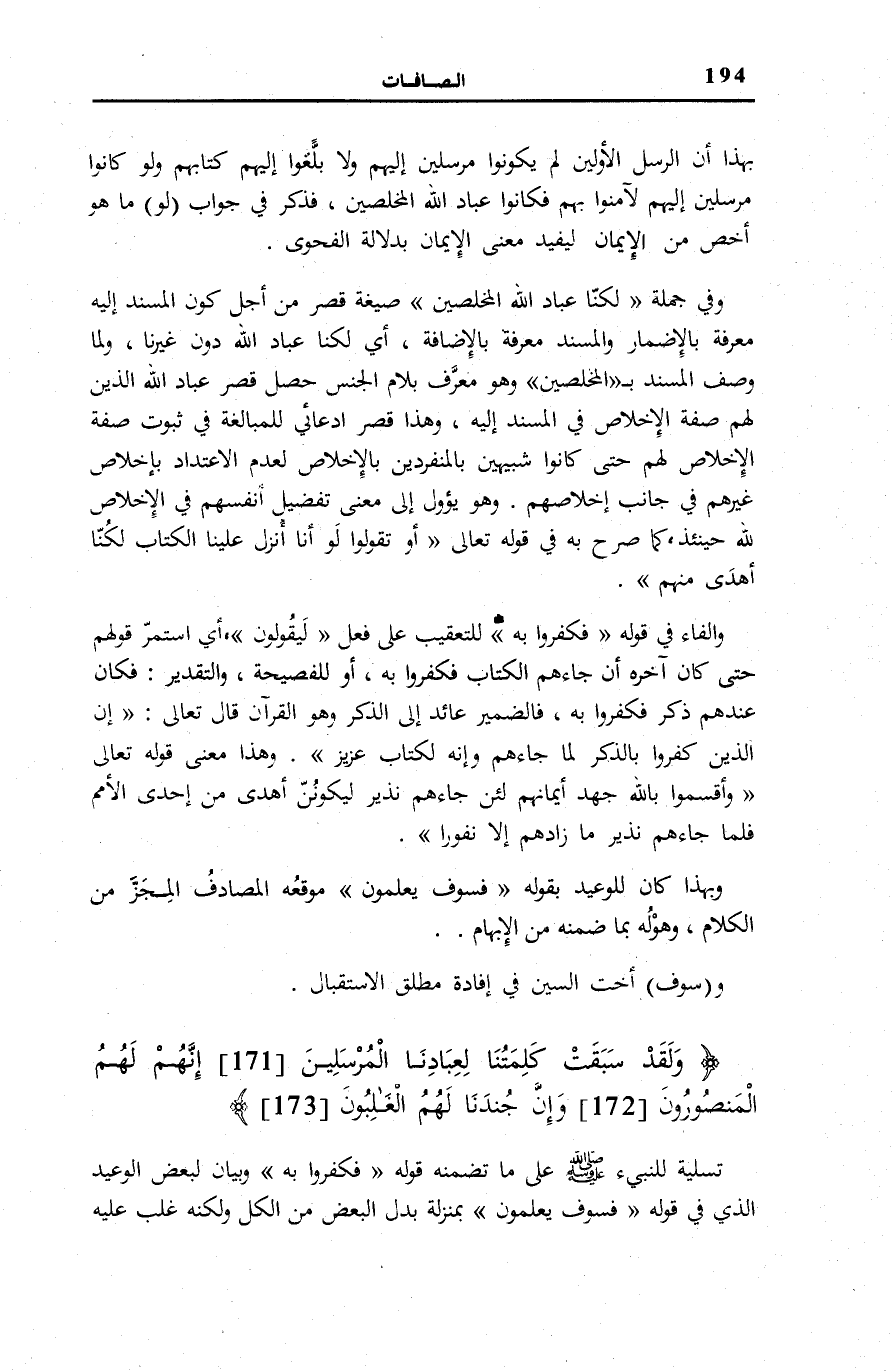 194
الصافات
بهذا أن الرسل الأولين لم يكونوا مرسلين إليهم ولا بلَّغوا إليهم كتابهم ولو كانوا
مرسلين إليهم لآمنوا بهم فكانوا عباد الله المخلصين ، فذكر في جواب (لو) ما هو
أخص من الإيمان ليفيد معنى الإيمان بدلالة الفحوى .
وفي جملة « لكنّا عباد الله المخلصين » صيغة قصر من أجل كون المسند إليه
معرفة بالإضمار والمسند معرفة بالإضافة ، أي لكنا عباد الله دون غيرنا ، ولما
وصف المسند بـ«المخلصين» وهو معرَّف بلام الجنس حصل قصر عباد الله الذين
لهم صفة الإخلاص في المسند إليه ، وهذا قصر ادعائي للمبالغة في ثبوت صفة
الإخلاص لهم حتى كانوا شبيهين بالمنفردين بالإخلاص لعدم الاعتداد بإخلاص
غيرهم في جانب إخلاصهم . وهو يؤول إلى معنى تفضيل أنفسهم في الإخلاص
لله حينئذ، كما صرح به في قوله تعالى « أو تقولوا لَو أنا أُنزل علينا الكتاب لكُنّا
أهدَى منهم » .
والفاء في قوله « فكفروا به » للتعقيب على فعل « لَيقُولون »، أي استمرّ قولهم
حتى كان آخره أن جاءهم الكتاب فكفروا به ، أو للفصيحة ، والتقدير : فكان
عندهم ذكر فكفروا به ، فالضمير عائد إلى الذكر وهو القرآن قال تعالى : « إن
الذين كفروا بالذكر لما جاءهم وإنه لكتاب عزيز » . وهذا معنى قوله تعالى
« وأقسموا بالله جهد أيمانهم لئن جاءهم نذير ليكونُنّ أهدى من إحدى الأمم
فلما جاءهم نذير ما زادهم إلا نفورا » .
وبهذا كان للوعيد بقوله « فسوف يعلمون » موقعُه المصادفُ المِجَزَّ من
الكلام ، وهوْلُه بما ضمنه من الإبهام . .
و(سوف) أخت السين في إفادة مطلق الاستقبال .
﴿ وَلَقَدْ سَبَقَتْ كَلِمَتُنَا لِعِبَادِنَا الْمُرْسَلِينَ [171] إِنَّهُمْ لَهُمُ
الْمَنصُورُونَ [172] وَإِنَّ جُندَنَا لَهُمُ الْغَـٰلِبُونَ [173] ﴾
تسلية للنبيء ﷺ على ما تضمنه قوله « فكفروا به » وبيان لبعض الوعيد
الذي في قوله « فسوف يعلمون » بمنزلة بدل البعض من الكل ولكنه غلب عليه